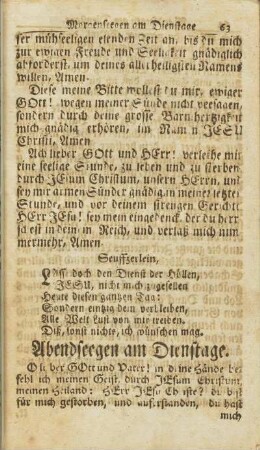 Morgenseegen am Dienstage 63
ser mühseeligen elenden Zeit an, bis du mich
zur ewigen Freude und Seeligkeit gnädiglich
abforderst, um deines allerheiligsten Namens
willen, Amen.
Diese meine Bitte wollest du mir, ewiger
GOtt! wegen meiner Sünde nicht versagen,
sondern durch deine grosse Barmhertzigkeit
mich gnädig erhören, im Namen JESU
Christi, Amen
Ach lieber GOtt und HErr! verleihe mir
eine seelige Stunde, zu leben und zu sterben
durch JEsum Christum, unsern HErrn, und
sey mir armen Sünder gnädig in meiner letzten
Stunde, und vor deinem strengen Gericht!
HErr JEsu! sey mein eingedenck, der du herr
ja est in deinem Reich, und verlaß mich nun
mermehr, Amen
Seuffzerlein,
doch den Dienst der Höllen,
JESU, nicht mich zugesellen
Heute diesen gantzen Tag:
Sondern eintzig dein verbleiben,
Alle Welt Lust von mir treiben,
Diß, sonst nichts, ich wünschen mag.
Abendseegen am Dienstage.
O lieber GOtt und Vater! in deine Hände be
fehl ich meinen Geist, durch JEsum Christum,
meinen Heiland: HErr JEsu Christe! du bist
für mich gestorben, und auferstanden, du hast
mich